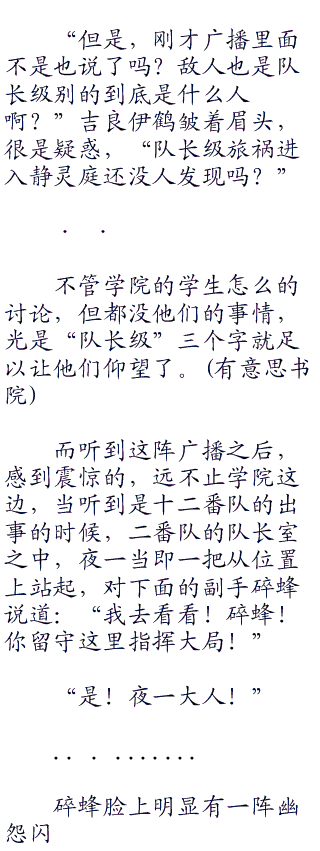 “但是，刚才广播里面
不是也说了吗？敌人也是队
长级别的到底是什么人
啊？”吉良伊鹤皱着眉头，
很是疑惑，“队长级旅祸进
入静灵庭还没人发现吗？”
． ．
不管学院的学生怎么的
讨论，但都没他们的事情，
光是“队长级”三个字就足
以让他们仰望了。(有意思书
院)
而听到这阵广播之后，
感到震惊的，远不止学院这
边，当听到是十二番队的出
事的时候，二番队的队长室
之中，夜一当即一把从位置
上站起，对下面的副手碎蜂
说道：“我去看看！碎蜂！
你留守这里指挥大局！”
“是！夜一大人！”
．．．．．．．．．．
碎蜂脸上明显有一阵幽
怨闪